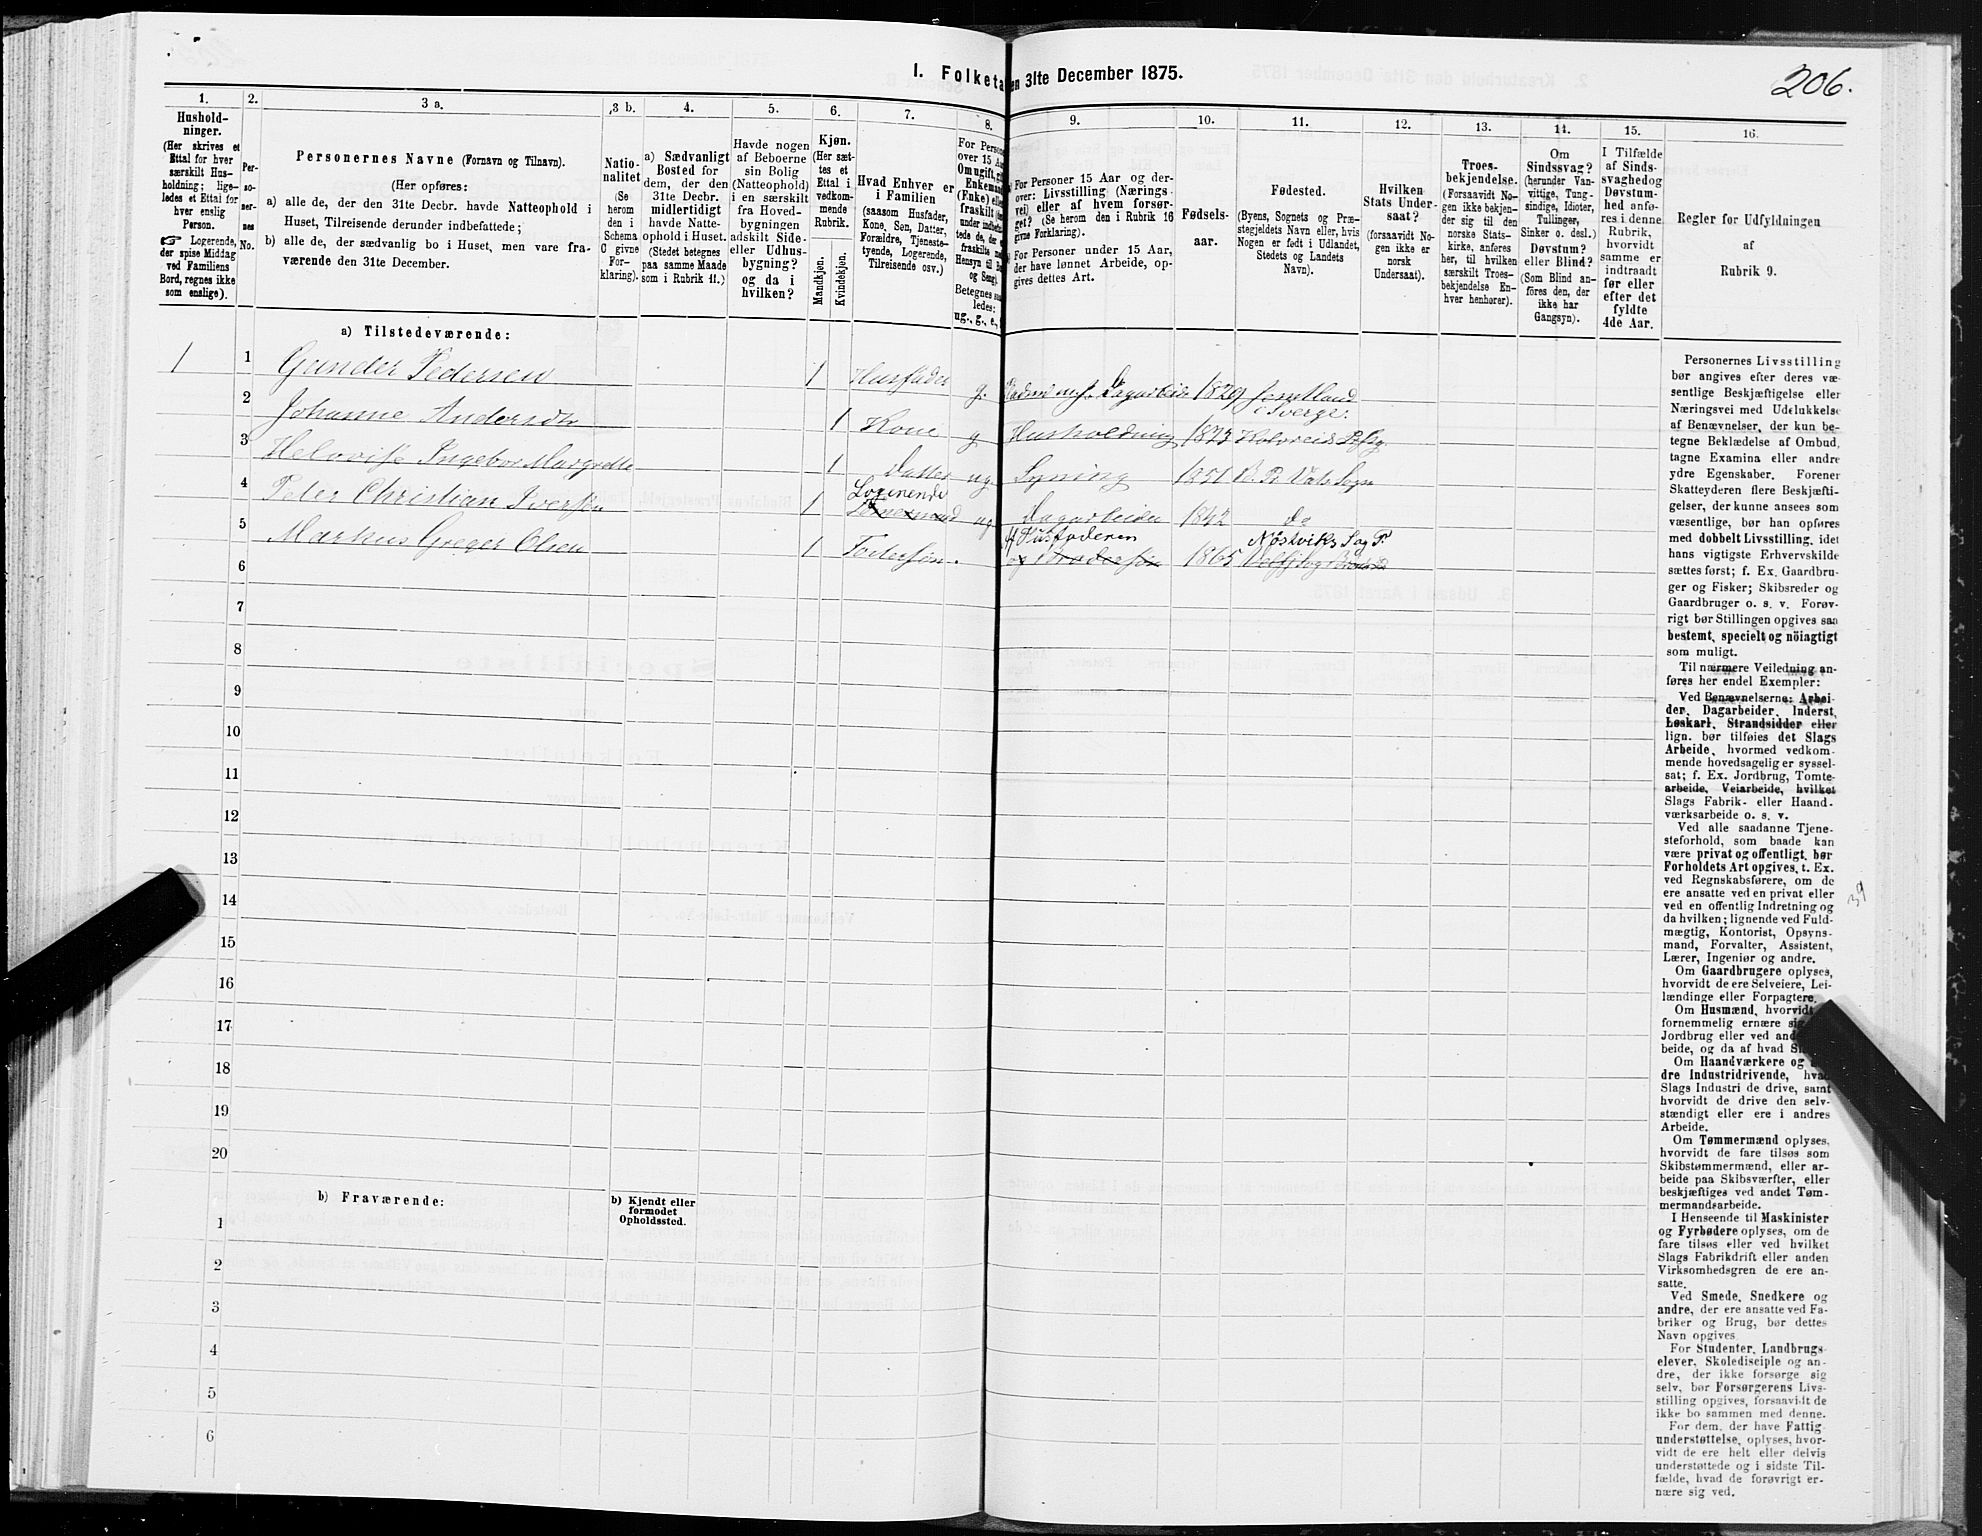 I. Folketa
en 31te December 1875.
206.
1.
2.
3 a.
3 b.
4.
5.
6.
7.
8.
9.
10.
11.
12.
13.
14.
15.
16.
Hushold-
ninger.
(Her skrives et
Ettal for hver
særskilt Hus-
holdning; lige-
ledes et Ettal for
hver enslig
Person.
☞ Logerende,
der spise Middag
ved Familiens
Bord, regnes ikke
som enslige).
Per-
so-
ner-
nes
No.
Personernes Navne (Fornavn og Tilnavn).
(Her opføres:
a) alle de, der den 31te Decbr. havde Natteophold i
Huset, Tilreisende derunder indbefattede;
b) alle de, der sædvanlig bo i Huset, men vare fra-
værende den 31te December.
Natio-
nalitet
(Se
herom
den i
Schema
G givne
For-
klaring).
a) Sædvanligt
Bosted for
dem, der den
31te Decbr.
midlertidigt
havde Natte-
ophold i Huset.
(Stedet betegnes
paa samme Maade
som i Rubrik 11.)
Havde nogen
af Beboerne
sin Bolig
(Natteophold)
i en særskilt
fra Hoved-
bygningen
adskilt Side-
eller Udhus-
bygning?
og da i
hvilken?
Kjøn.
(Her sæt-
tes et
Ettal i
vedkom-
mende
Rubrik.
Mandkjøn.
Kvindekjøn.
Hvad Enhver er
i Familien
(saasom Husfader,
Kone, Søn, Datter,
Forældre, Tjeneste-
tyende, Logerende,
Tilreisende osv.)
For Person
over 15 Aa
Omugift, gi
Enkemand
(Enke) elle
fraskilt
under indbefat
tede de, der
fraskilte
Hensyn til Bo
og Seng).
Betegnes saa
ledes:
ug., g., e.,
For Personer 15 Aar og der-
over: Livsstilling (Nærings-
vei) eller af hvem forsør-
get? (Se herom den i Rubrik 16
givne Forklaring).
For Personer under 15 Aar,
der have lønnet Arbeide, op-
gives dettes Art.
Fødsels-
aar.
Fødested.
(Byens, Sognets og Præ-
stegjeldets Navn eller, hvis
Nogen er født i Udlandet,
Stedets og Landets
Navn).
Hvilken
Stats Under-
saat?
(forsaavidt No-
gen ikke er
norsk
Undersaat).
Troes-
bekjendelse.
(Forsaavidt No-
gen ikke bekjen-
der sig til den
norske Stats-
kirke, anføres
her, til hvilken
særskilt Troes-
bekjendelse En-
hver henhører).
Om
Sindssvag?
(herunder Van-
vittige, Tung-
sindige, Idioter,
Tullinger,
Sinker o. desl.)
Døvstum?
eller Blind?
(Som Blind an-
føres den, der
ikke har
Gangsyn).
I Tilfælde
af Sinds-
svaghedog
Døvstum-
hed anfø-
res i denne
Rubrik,
hvorvidt
samme er
indtraadt
før eller
efter det
fyldte
4de Aar.
Regler for Udfyldningen
af
Rubrik 9.
a) Tilstedeværende:
1 1 Gunder Pedersen 1 Husfader g. Dagarbeide 1829 Jemtland
i Sverge.
2 Johanne Andersdtr 1 Kone g Husholdning 1823 Kolvereid
3 Helvise Ingebor Margrette 1 Datter ug Syning 1851
4 Peter Christian Iversen 1 Logerende ug Dagarbeider 1842 do
5 Markus Greger Olsen 1 Fostersøn. af Husfaderen 1865 Nøstviks Sog P.
6
7
8
9
10
11
12
13
14
15
16
17
18
19
20
b) Fraværende:
b) Kjendt eller
formodet
Opholdssted.
1
2
3
4
5
6
Personernes Livsstilling
bør angives efter deres væ-
sentlige Beskjæftigelse eller
Næringsvei med Udelukkelse
af Benævnelser, der kun be-
tegne Beklædelse af Ombud,
tagne Examina eller andre
ydre Egenskaber. Forener
Skatteyderen flere Beskjæfti-
gelser, der kunne ansees som
væsentlige, bør han opføres
med dobbelt Livsstilling, idet
hans vigtigste Erhvervskilde
sættes først; f. Ex. Gaardbru-
ger og Fisker; Skibsreder og
Gaardbruger o. s. v. Forøv-
rigt bør Stillingen opgives saa
bestemt, specielt og nöiagtigt
som muligt.
Til nærmere Veiledning an-
føres her endel Exempler:
Ved Benævnelserne: Arbei-
der, Dagarbeider, Inderst,
Løskarl, Strandsidder eller
lign. bør tilføies det Slags
Arbeide, hvormed vedkom-
mende hovedsagelig er syssel-
sat; f. Ex. Jordbrug, Tomte-
arbeide, Veiarbeide, hvilket
Slags Fabrik- eller Haand-
værksarbeide o. s. v.
Ved alle saadanne Tjene-
steforhold, som baade kan
være privat og offentligt, bør
Forholdets Art opgives, t. Ex.
ved Regnskabsførere, om de
ere ansatte ved en privat eller
ved en offentlig Indretning og
da hvilken; lignende ved Fuld-
mægtig, Kontorist, Opsyns-
mand, Forvalter, Assistent,
Lærer, Ingeniør og andre.
Om Gaardbrugere oplyses,
hvorvidt de ere Selveiere, Lei-
lændinge eller Forpagtere.
Om Husmænd, hvorvidt
fornemmelig ernære si
Jordbrug eller ved and
beide, og da af hvad S
Om Haandværkere og
dre Industridrivende, hva
Slags Industri de drive, samt
hvorvidt de drive den selv-
stændigt eller ere i andres
Arbeide.
Om Tømmermænd oplyses,
hvorvidt de fare tilsøs som
Skibstømmermænd, eller ar-
beide paa Skibsværfter, eller
beskjæftiges ved andet Tøm-
mermandsarbeide.
I Henseende til Maskinister
og Fyrbødere oplyses, om de
fare tilsøs eller ved hvilket
Slags Fabrikdrift eller anden
Virksomhedsgren de ere an-
satte.
Ved Smede, Snedkere og
andre, der ere ansatte ved Fa-
briker og Brug, bør dettes
Navn opgives
For Studenter, Landbrugs-
elever, Skoledisciple og an-
dre, der ikke forsørge sig
selv, bør Forsørgerens Livs-
stilling opgives, forsaavidt de
ikke bo sammen med denne.
For dem, der have Fattig-
understøttelse, oplyses, hvor-
vidt de ere helt eller delvis
understøttede og i sidste Til-
fælde, hvad de forøvrigt er-
nære sig ved.
39